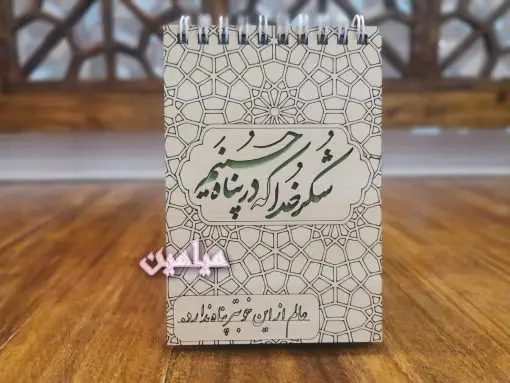 شکر خدا که در پناه حسنیم
میامین
عالم از این خوبتر پناه نداره